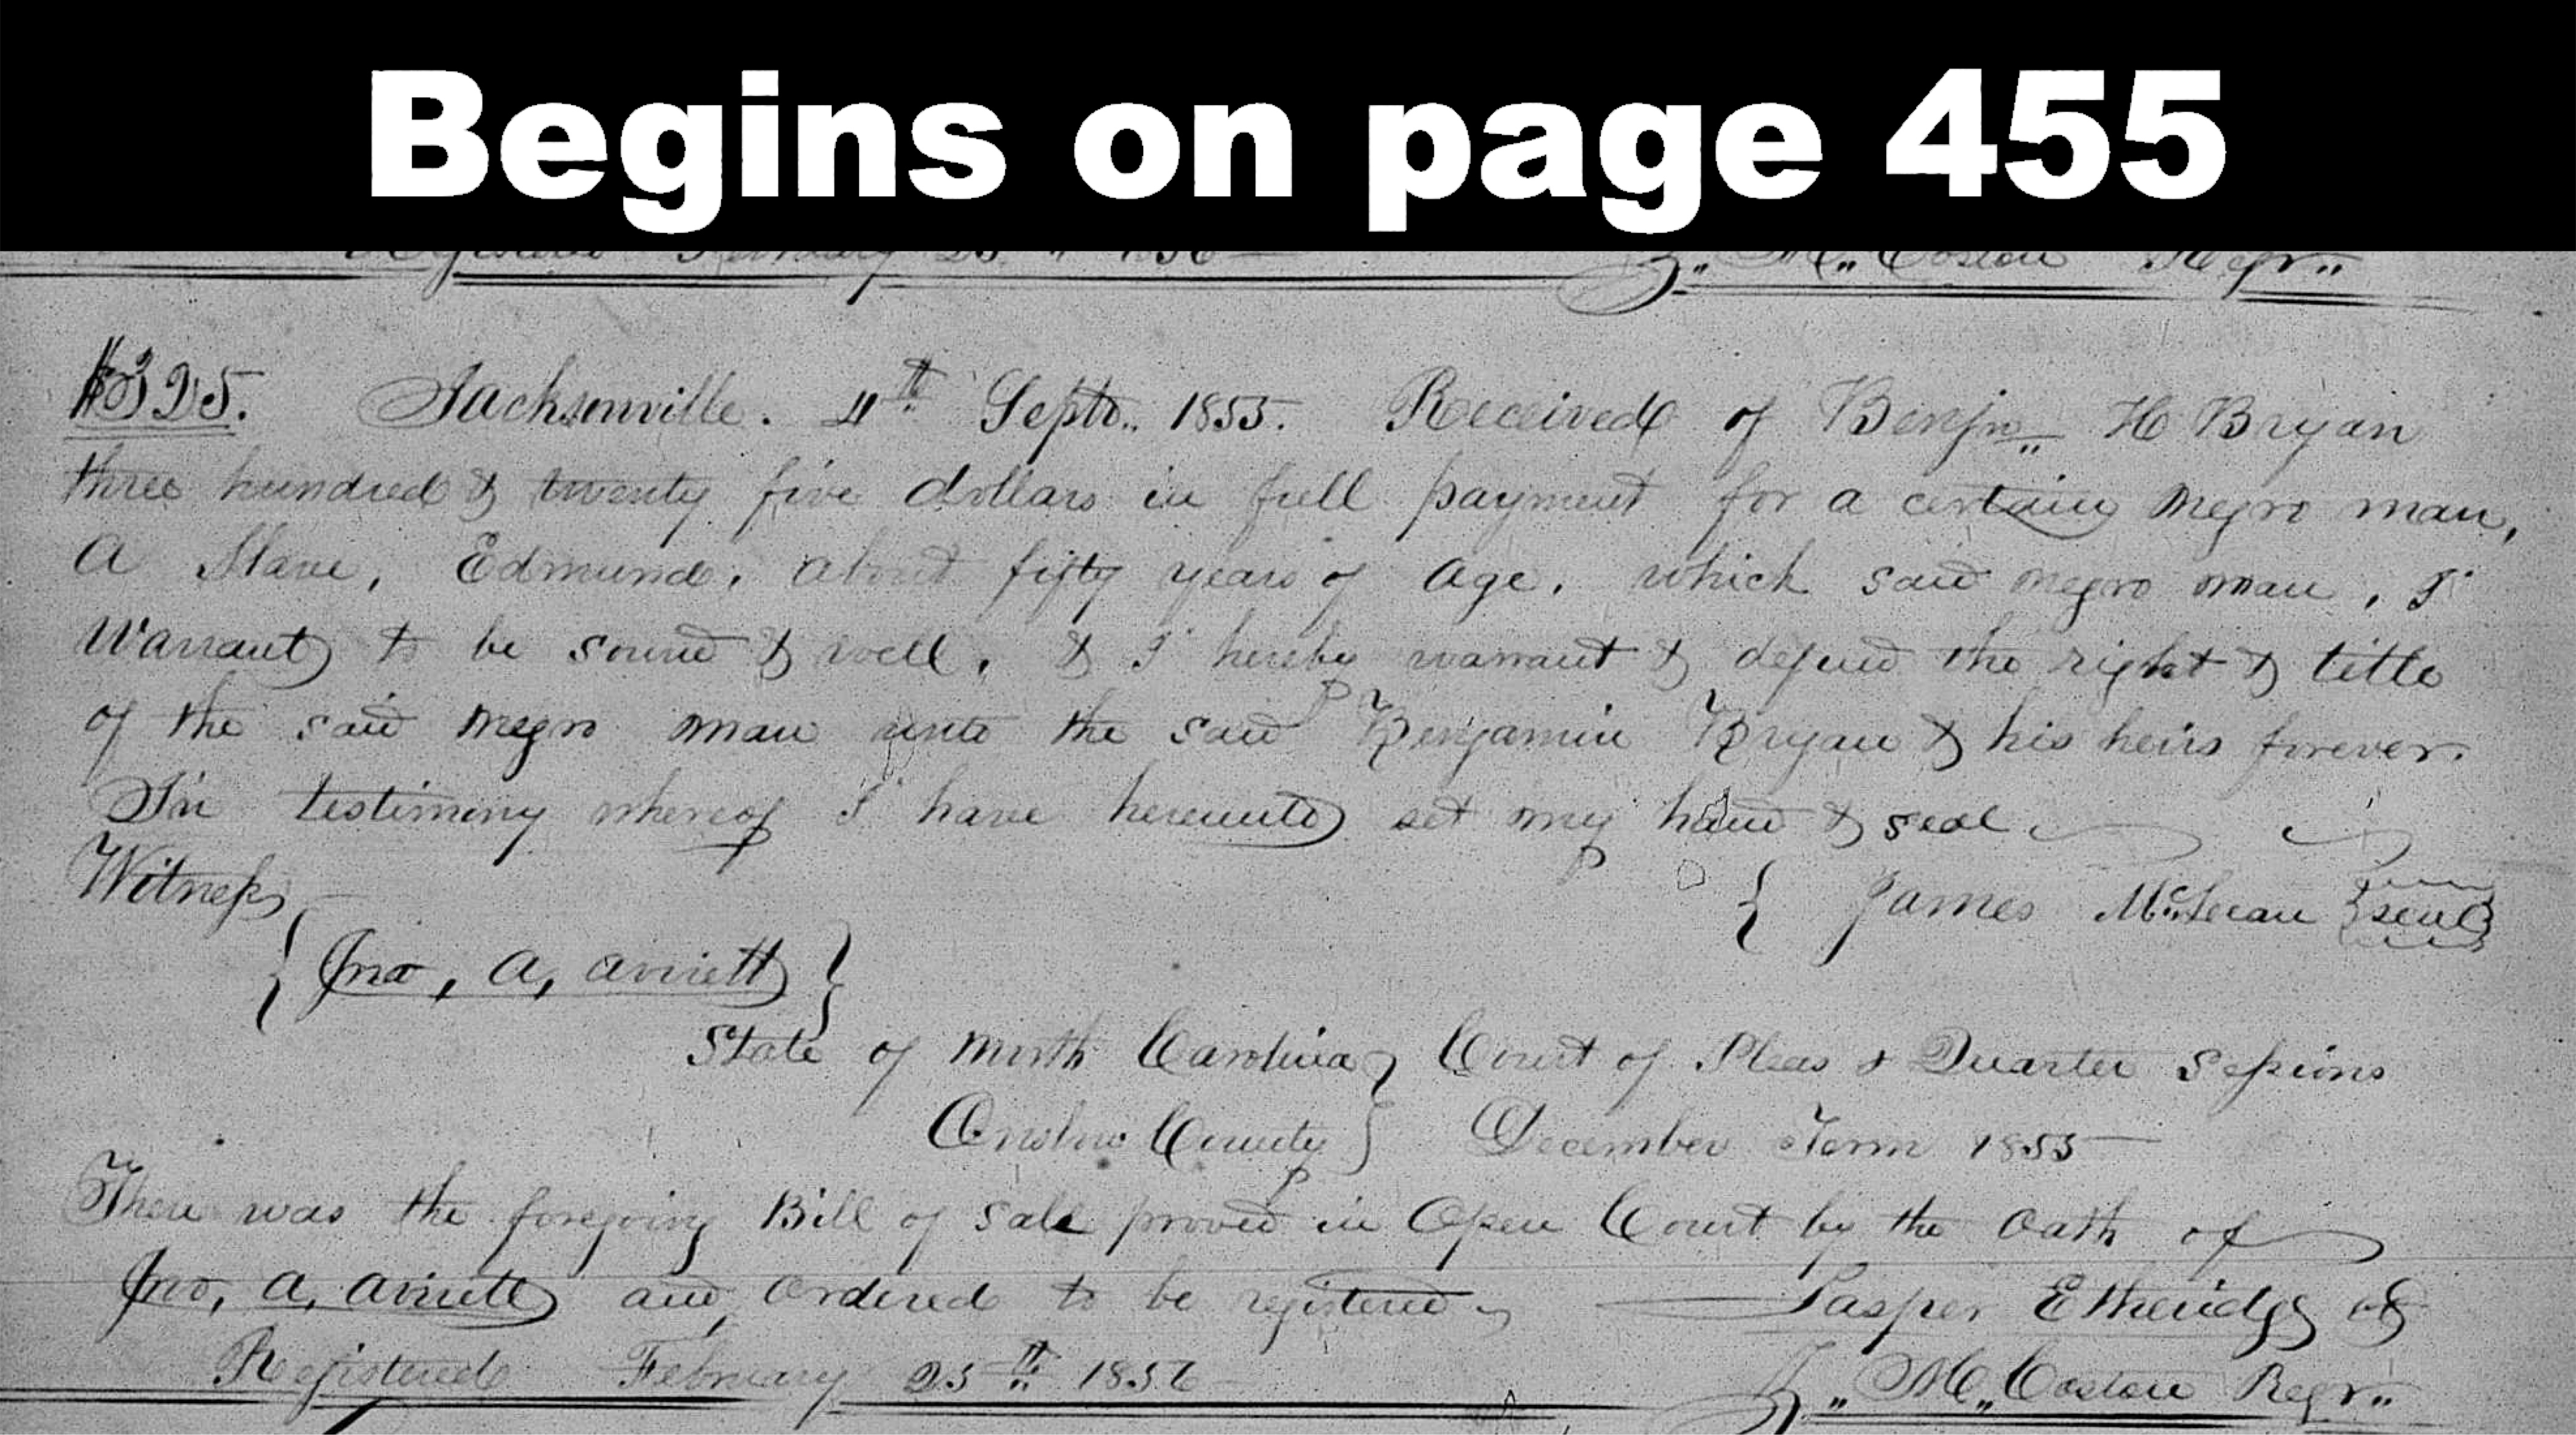 Begins on page 455
Registered February 25 th 1856 M,, Costin Regr,,
$325. Jacksonville. 4th Septr.. 1855. Received of Benjn H Bryan
three hundred & twenty five dollars in full payment for a certain negro man,
A Slave, Edmund, about fifty years of age. which said negro man, I
Warrant to be sound & well, & I hereby warrant & defend the right & title
of the said negro man unto the said Benjamin Bryan & his heirs forever.
In testimony whereof I have hereunto set my hand & seal
Witness
{ James {seal}
{ Jno, A, Avirett }
State of North Carolina } Court of Pleas & Quarter Sessions
Onslow County } December Term 1855
Then was the foregoing Bill of Sale proved in Open Court by the oath of
Jno, A, Avirett and Ordered to be registered Jasper Etheridge
Registered February 25th 1856 M,, Costin Regr,,